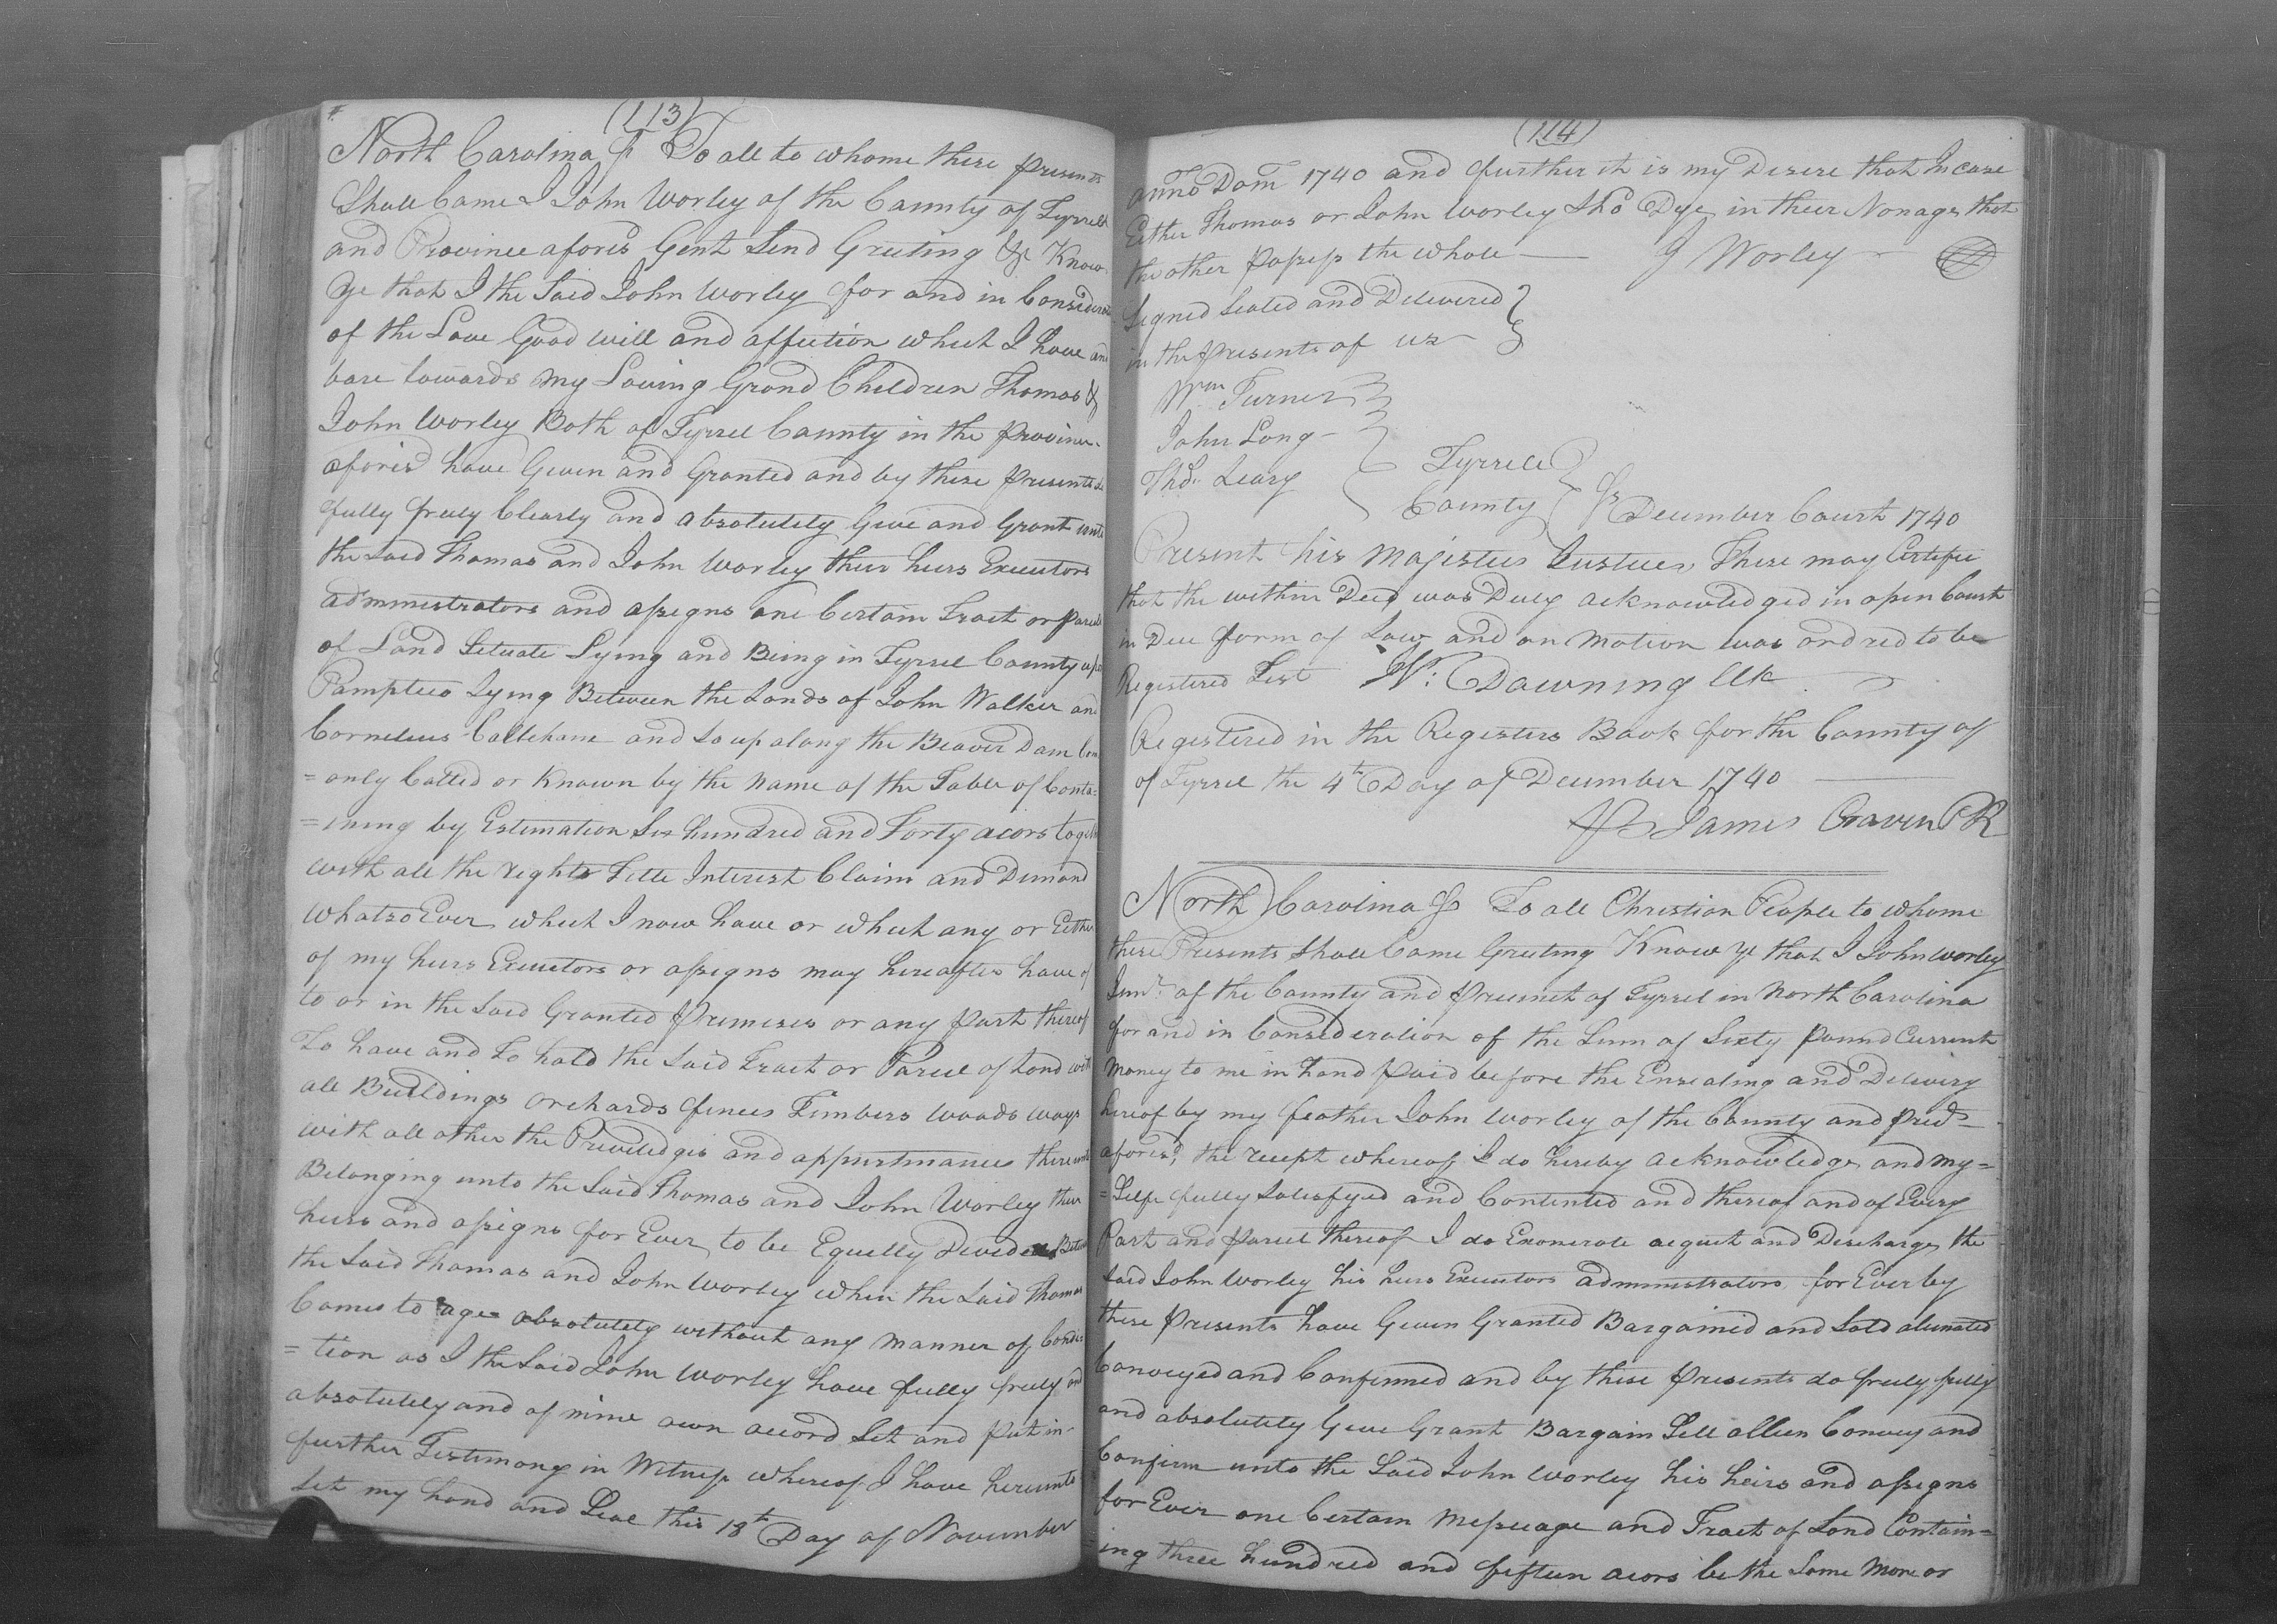 (113)
North Carolina ff To all to whome these presents
Shall Come I John Worley of the County of Tyrrell
and Province aforesd Gent Send Greeting &c Know
ye that I the Said John Worley for and in Considerat
of the Love Good will and affection which I have and
bare towards my Loving Grand Children Thomas &
John Worley Both of Tyrrel County in the province
aforesd have Given and Granted and by these presents do
fully fruly Clearly and absolutely Give and Grant unto
the Said Thomas and John Worley their heirs Executors
administrators and assigns one Certain Tract or parcel
of Land Situate Lying and Being in Tyrrel County
Pamptico Lying Between the Lands of John Walker and
Cornelius Callehane and so up along the Beaver Dam Com
=only Called or Known by the name of the Table of Conta=
=ining by Estimation Six hundred and Forty acors togeth
with all the rights Title Interest Claim and Demand
whatsoEver which I now have or which any or Either
of my heirs Executors or assigns may hereafter have of
to or in the Said Granted Premises or any part thereof
To have and To hold the Said Tract or Parcel of Land with
all Buildings orchards fences Timbers woods ways
with all other the Priviledges and appurtinances thereunto
Belonging unto the Said Thomas and John Worley their
heirs and assigns for Ever to be Equelly Devided Betwe
the Said Thomas and John Worley when the Said Thomas
Comes to age absolutely without any manner of Condi=
=tion as I the Said John Worley have fully freely and
absolutely and of mine own accord Set and put in
further Testimony in Witness whereof I have hereunto
Set my hand and Seal this 18th Day of November
(114)
anno Dom 1740 and further it is my Desere that In case
Either Thomas or John Worley Shd Dye in their Nonage that
the other possess the whole J Worley
Signed Sealed and Delivered
in the presents of us
Wm Turner
John Long
Thos. Leary
Tyrrell
County ff December Court 1740
Present his Majesties Justices These may Certifie
that the within Deed was Duly acknowledged in open Court
in Due form of Law and on motion was ordred to be
Registered Test Wm: Downing Clk
Registered in the Registers Book for the County of
of Tyrrel the 4th Day of December 1740
Pr James Craven PR
North Carolina ff To all Christian People to whome
these Presents shall Come Greeting Know ye that I John Worley
Junr. of the County and precinct of Tyrrel in North Carolina
for and in Consideration of the Sum of Sixty pound Current
money to me in hand paid before the Ensealing and Delivery
hereof by my feather John Worley of the County and pred
aforesd, the receipt whereof I do hereby acknowledge and my=
=Selfe fully Satisfyed and Contented and thereof and of Every
Part and parcel thereof I do Exonerate acquit and Discharge the
Said John Worley his heirs Executors administrators for Ever by
these presents have Given Granted Bargained and Sold alienated
Conveyed and Confirmed and by these presents do freely fully
and absolutely Give Grant Bargain Sell allien Convey and
Confirm unto the Said John Worley his heirs and assigns
for Ever one Certain Messuage and Tract of Land Contain=
=ing three hundred and fifteen acors be the Same more or